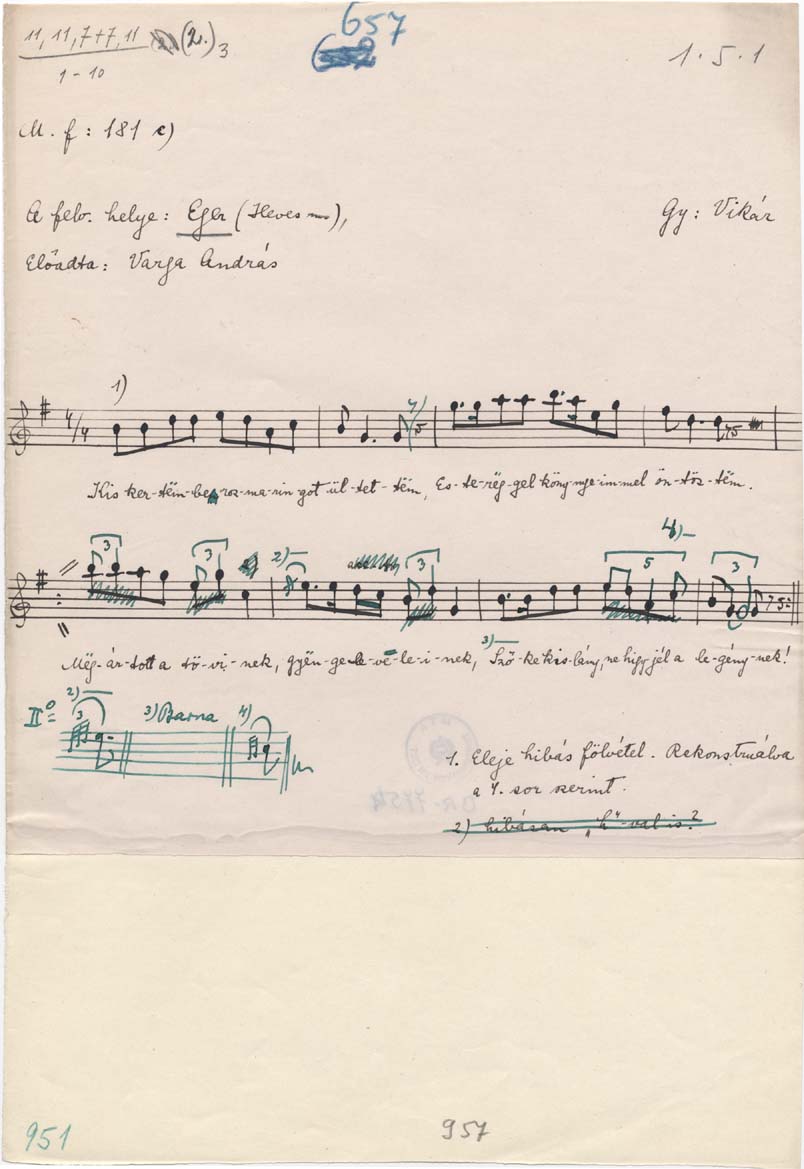 657
11, 11, 7+7, 11 (2.) 3
1 - 10
1 . 5 . 1
M. f : 181 c)
A felv. helye : Eger (Heves m.),
Gy : Vikár
Előadta : Varga András
1)
4/4
Kis ker-tëm-be roz-ma-rin-got ül-tet-tëm, Es-te-rëg-gel köny-nye-im-mel ön-töz-tëm.
3 3 2) 3 5 4) 3
3)
Mëg-ár-tott a tö-vi-nek, gyën-ge le-ve-le-i-nek, Sző-ke kis-lány, ne higy-jél a le-gény-nek!
II° = 2) 3 3) Barna 4)
1. Eleje hibás fölvétel. Rekonstruálva
a 4. sor szerint.
2) hibásan „h"-val is?
951
957